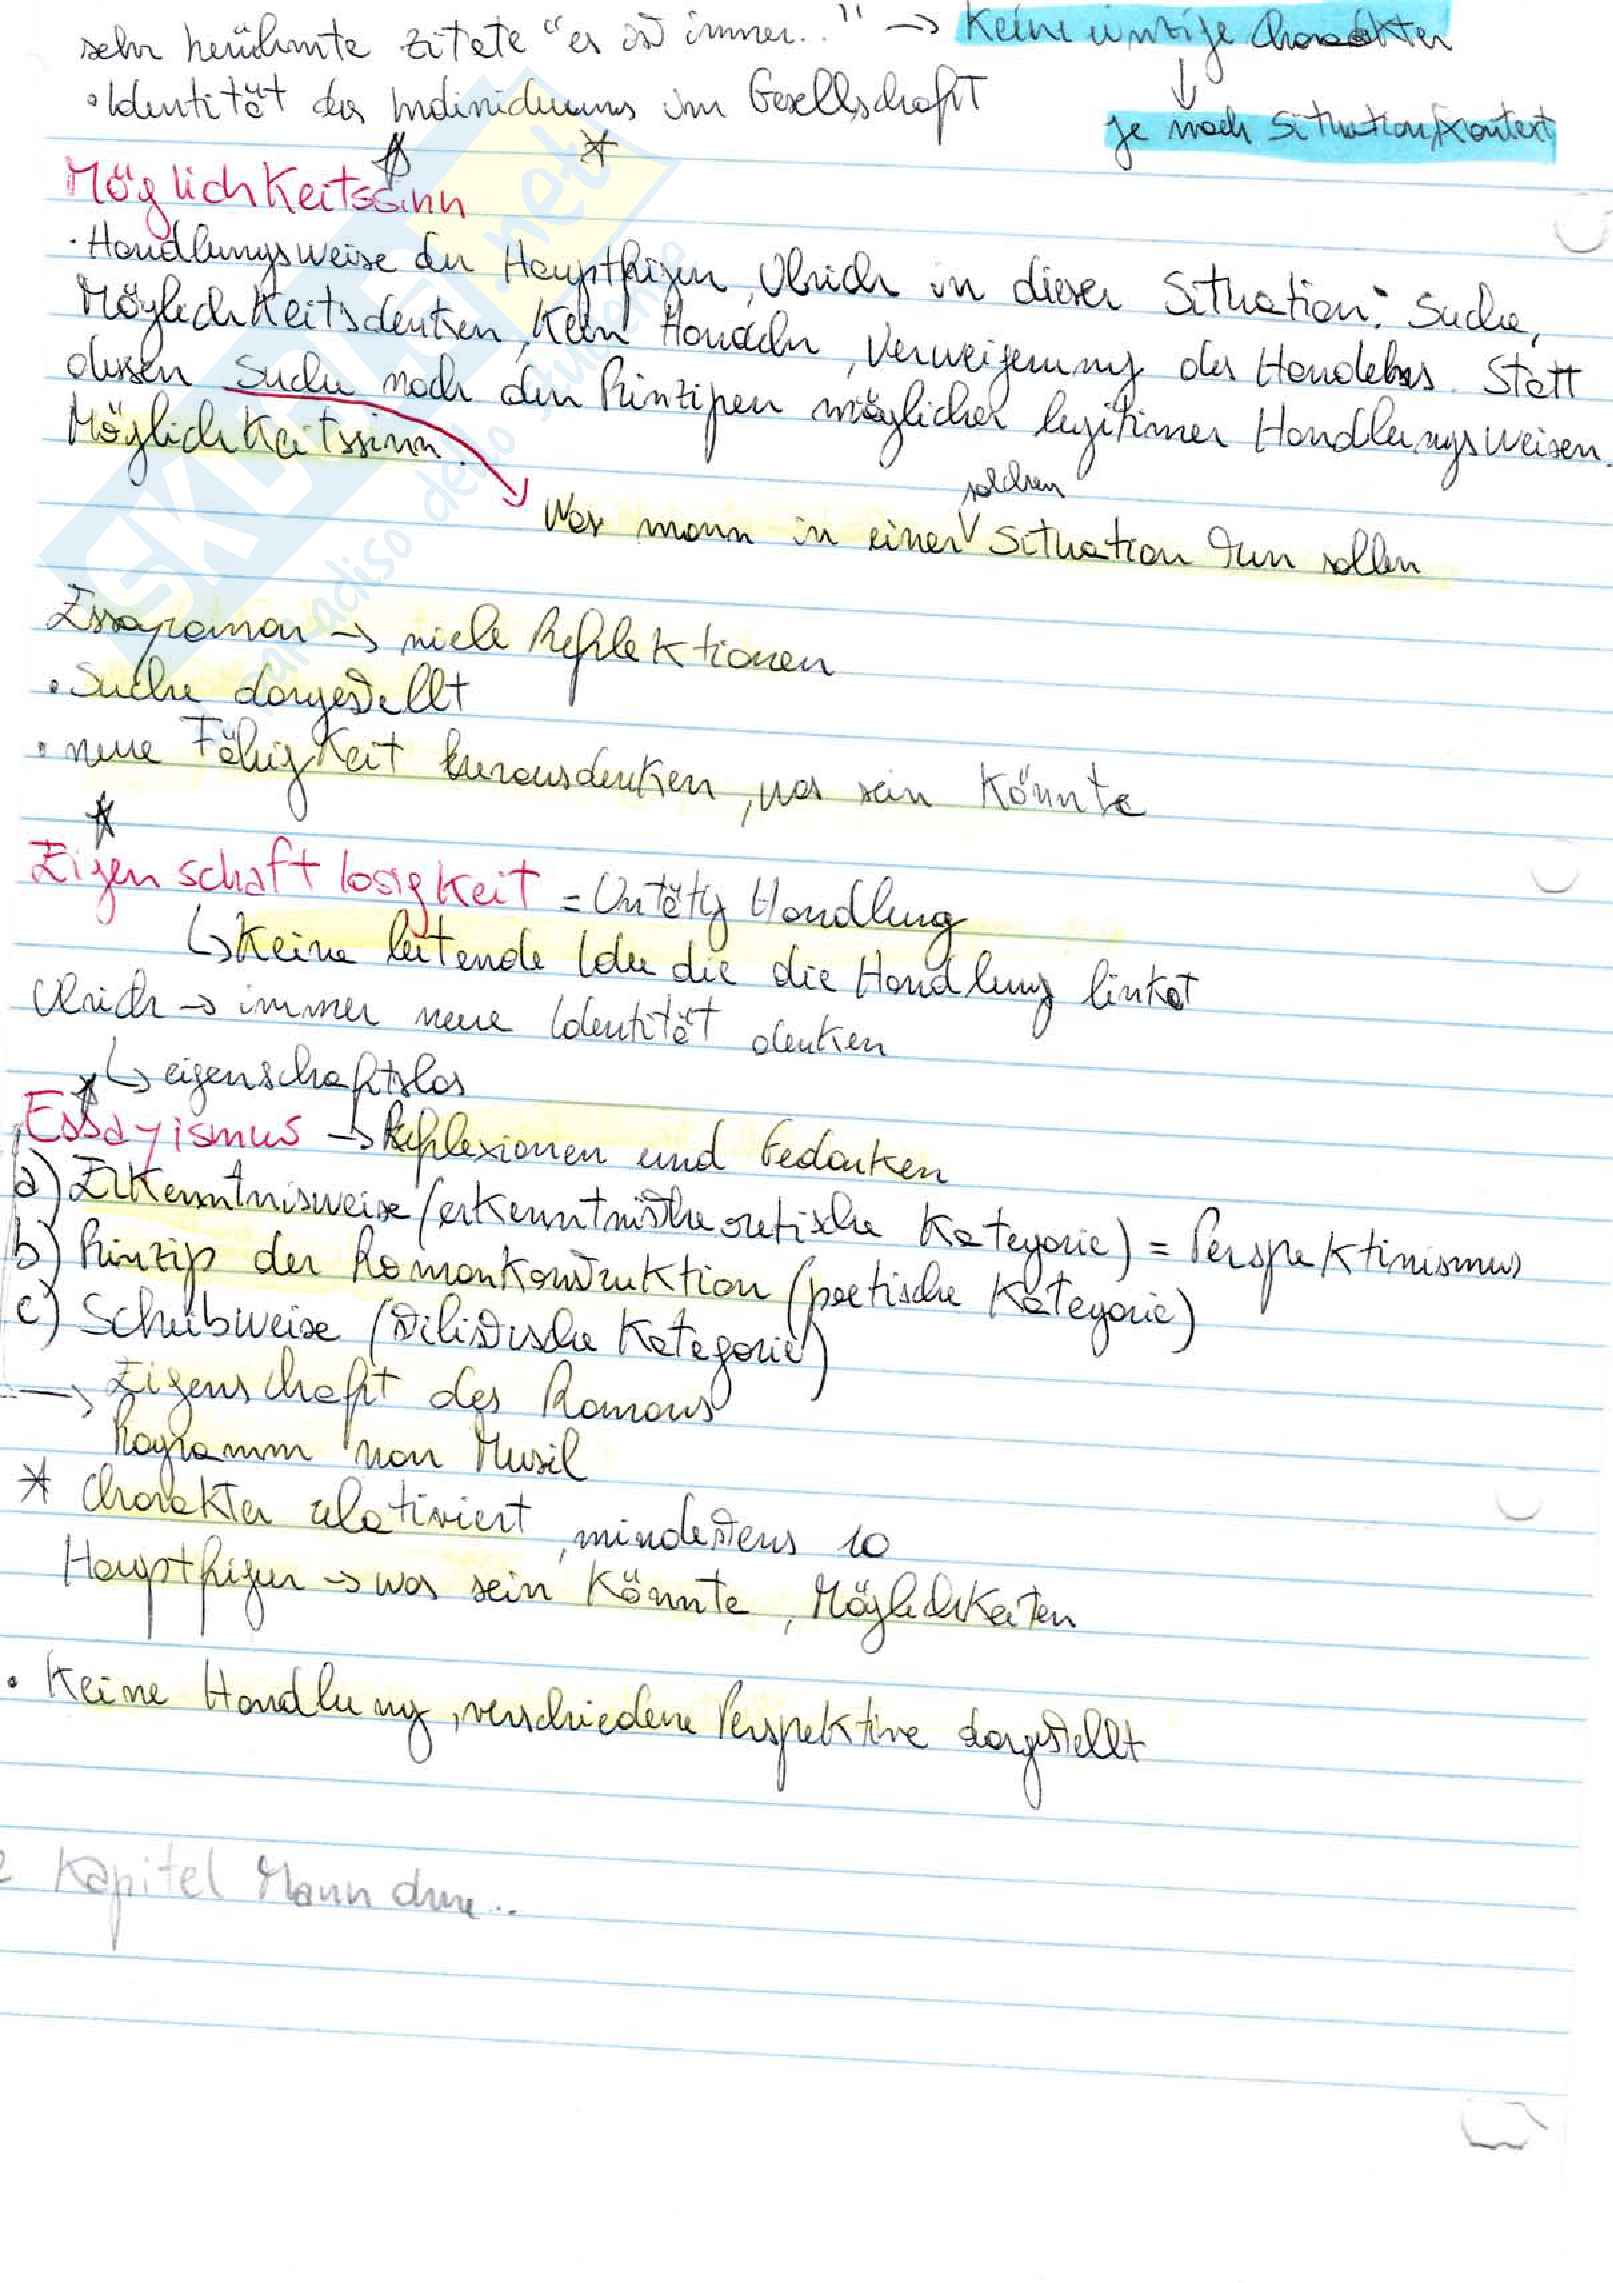 sehr berühmte Zitate "es ist immer.." → Keine einzige Charakter
↓
• Identität des Individuums im Gesellschaft
je nach Situation/Kontext
Möglichkeitssinn
• Handlungsweise der Hauptfigur, Ulrich in dieser Situation: Suche,
Möglichkeitsdenken, Kein Handeln, Verweigerung des Handelns. Statt
dessen Suche nach den Prinzipen möglicher legitimer Handlungsweisen.
Möglichkeitssinn.
solchen
Was mann in einer Situation tun sollen
Essayroman → viele Reflektionen
• Suche dargestellt
• neue Fähigkeit herausdenken, was sein Könnte
Eigenschaftlosigkeit = Untätig Handlung
↳ Keine leitende Idee die die Handlung linket
Ulrich → immer neue Identität denken
↳ eigenschaftslos
Essayismus → Reflexionen und Gedanken
a) Erkenntnisweise (erkenntnistheoretische Kategorie) = Perspektivismus
b) Prinzip der Romankonstruktion (poetische Kategorie)
c) Scheibweise (stilistische Kategorie)
→ Eigenschaft des Romans
Programm von Musil
* Charakter relativiert, mindestens 10
Hauptfigur → was sein Könnte, Möglichkeiten
• Keine Handlung, verschiedene Perspektive dargestellt
Kapitel Mann ohne..
SKUOLA.net
paradiso dello studente